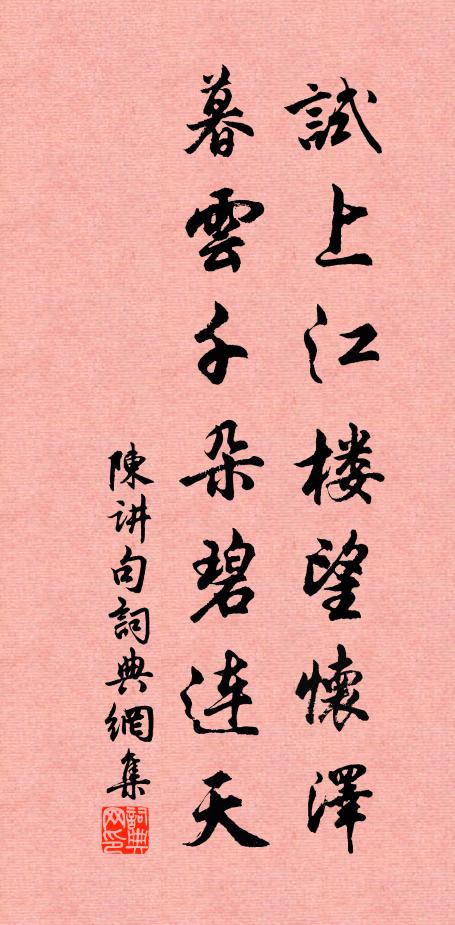 試上江楼望懷澤
暮雲千朵碧連天
陳讲句詞典網集
詞典网印